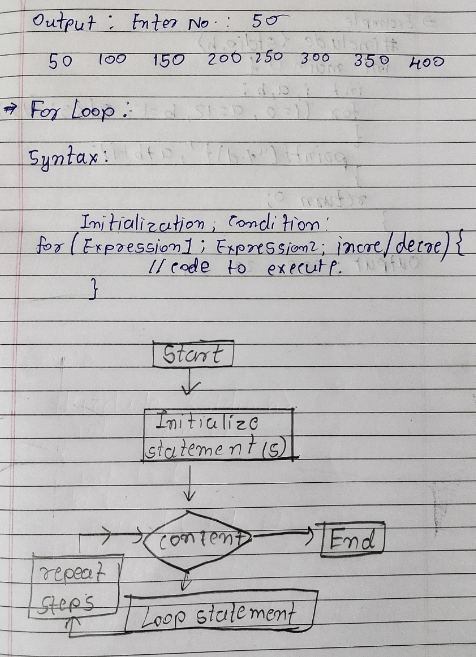 Output : Enter No. : 50
50 100 150 200 250 300 350 400
→ For Loop :-
Syntax :
Initialization ; Condition :
for (Expression1 ; Expression2 ; incre/decre) {
// code to execute.
}
Start
Initialize
statement(s)
Content
End
repeat
steps
Loop statement